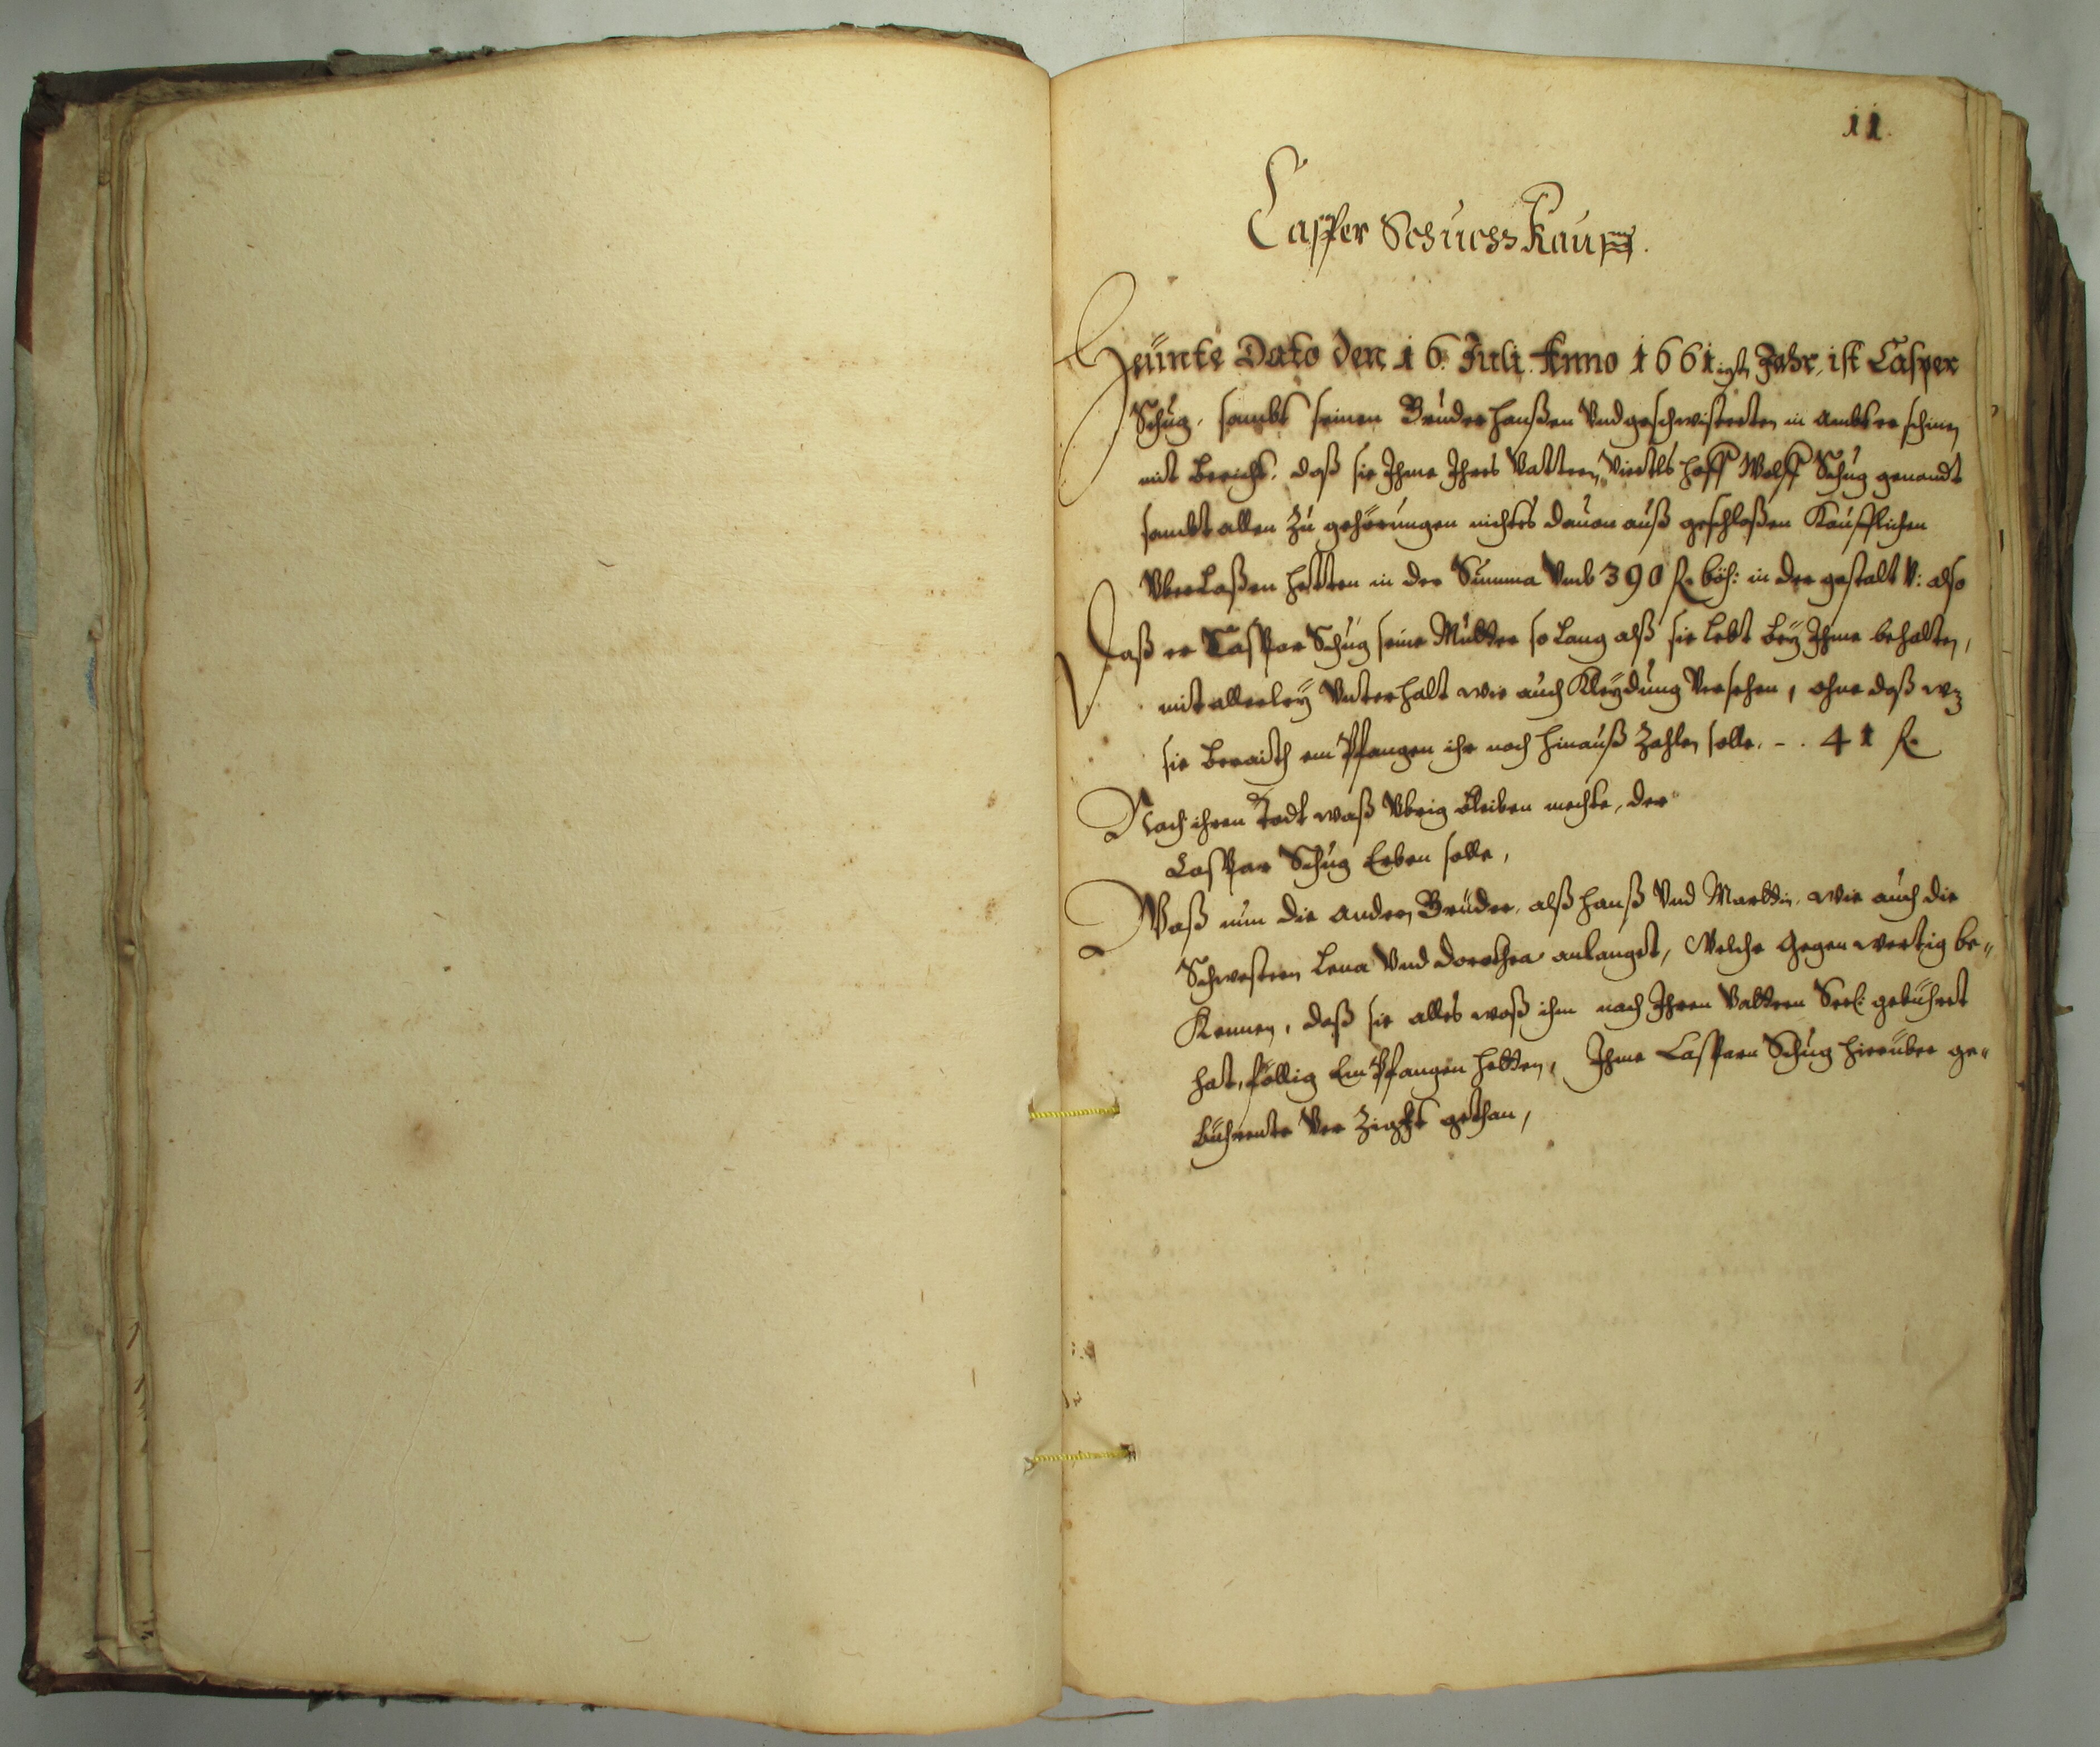 11.
Casper Schuchs Kauff.
Heünte Dato den 16. Juli. Anno 1661igst Jahr, ist Casper
Schüg, sambt seinen Brüder Hanßen Vnd geschwistreten in Ambt erschinen
mit Bericht, daß sie Ihme Ihres Vattern Viertls hoff Wolff Schüg genandt
sambt allen Zü gehörungen nichtes dauon auß geschloßen Kaüfflichen
Vberlaßen hetten in der Summa Vmb 390 fl. böh: in der gestalt V: also
Daß er Caspar Schüg seine Mütter so lang alß sie lebt beÿ Ihme behalten,
mit allerleÿ Vnterhalt wie auch Kleÿdung Versehen, ohne daß wz
sie beraith em Pfangen ihr noch hinauß Zahlen solle. - . 41 fl.
Nach ihren Todt waß Vbrig bleiben mechte, der
Caspar Schüg Erben solle,
Waß nün die andern Brüder, alß Hanß Vnd Marttin, wie auch die
Schwestern Lena Vnd Dorothea anlanget, Welche gegen wertig be„
Kennen, daß sie alles waß ihm nach Ihren Vattern Seel: gebühret
hat, föllig Em Pfangen hetten, Ihme Caspern Schüg hierüber ge„
bührente Ver Zight gethan,